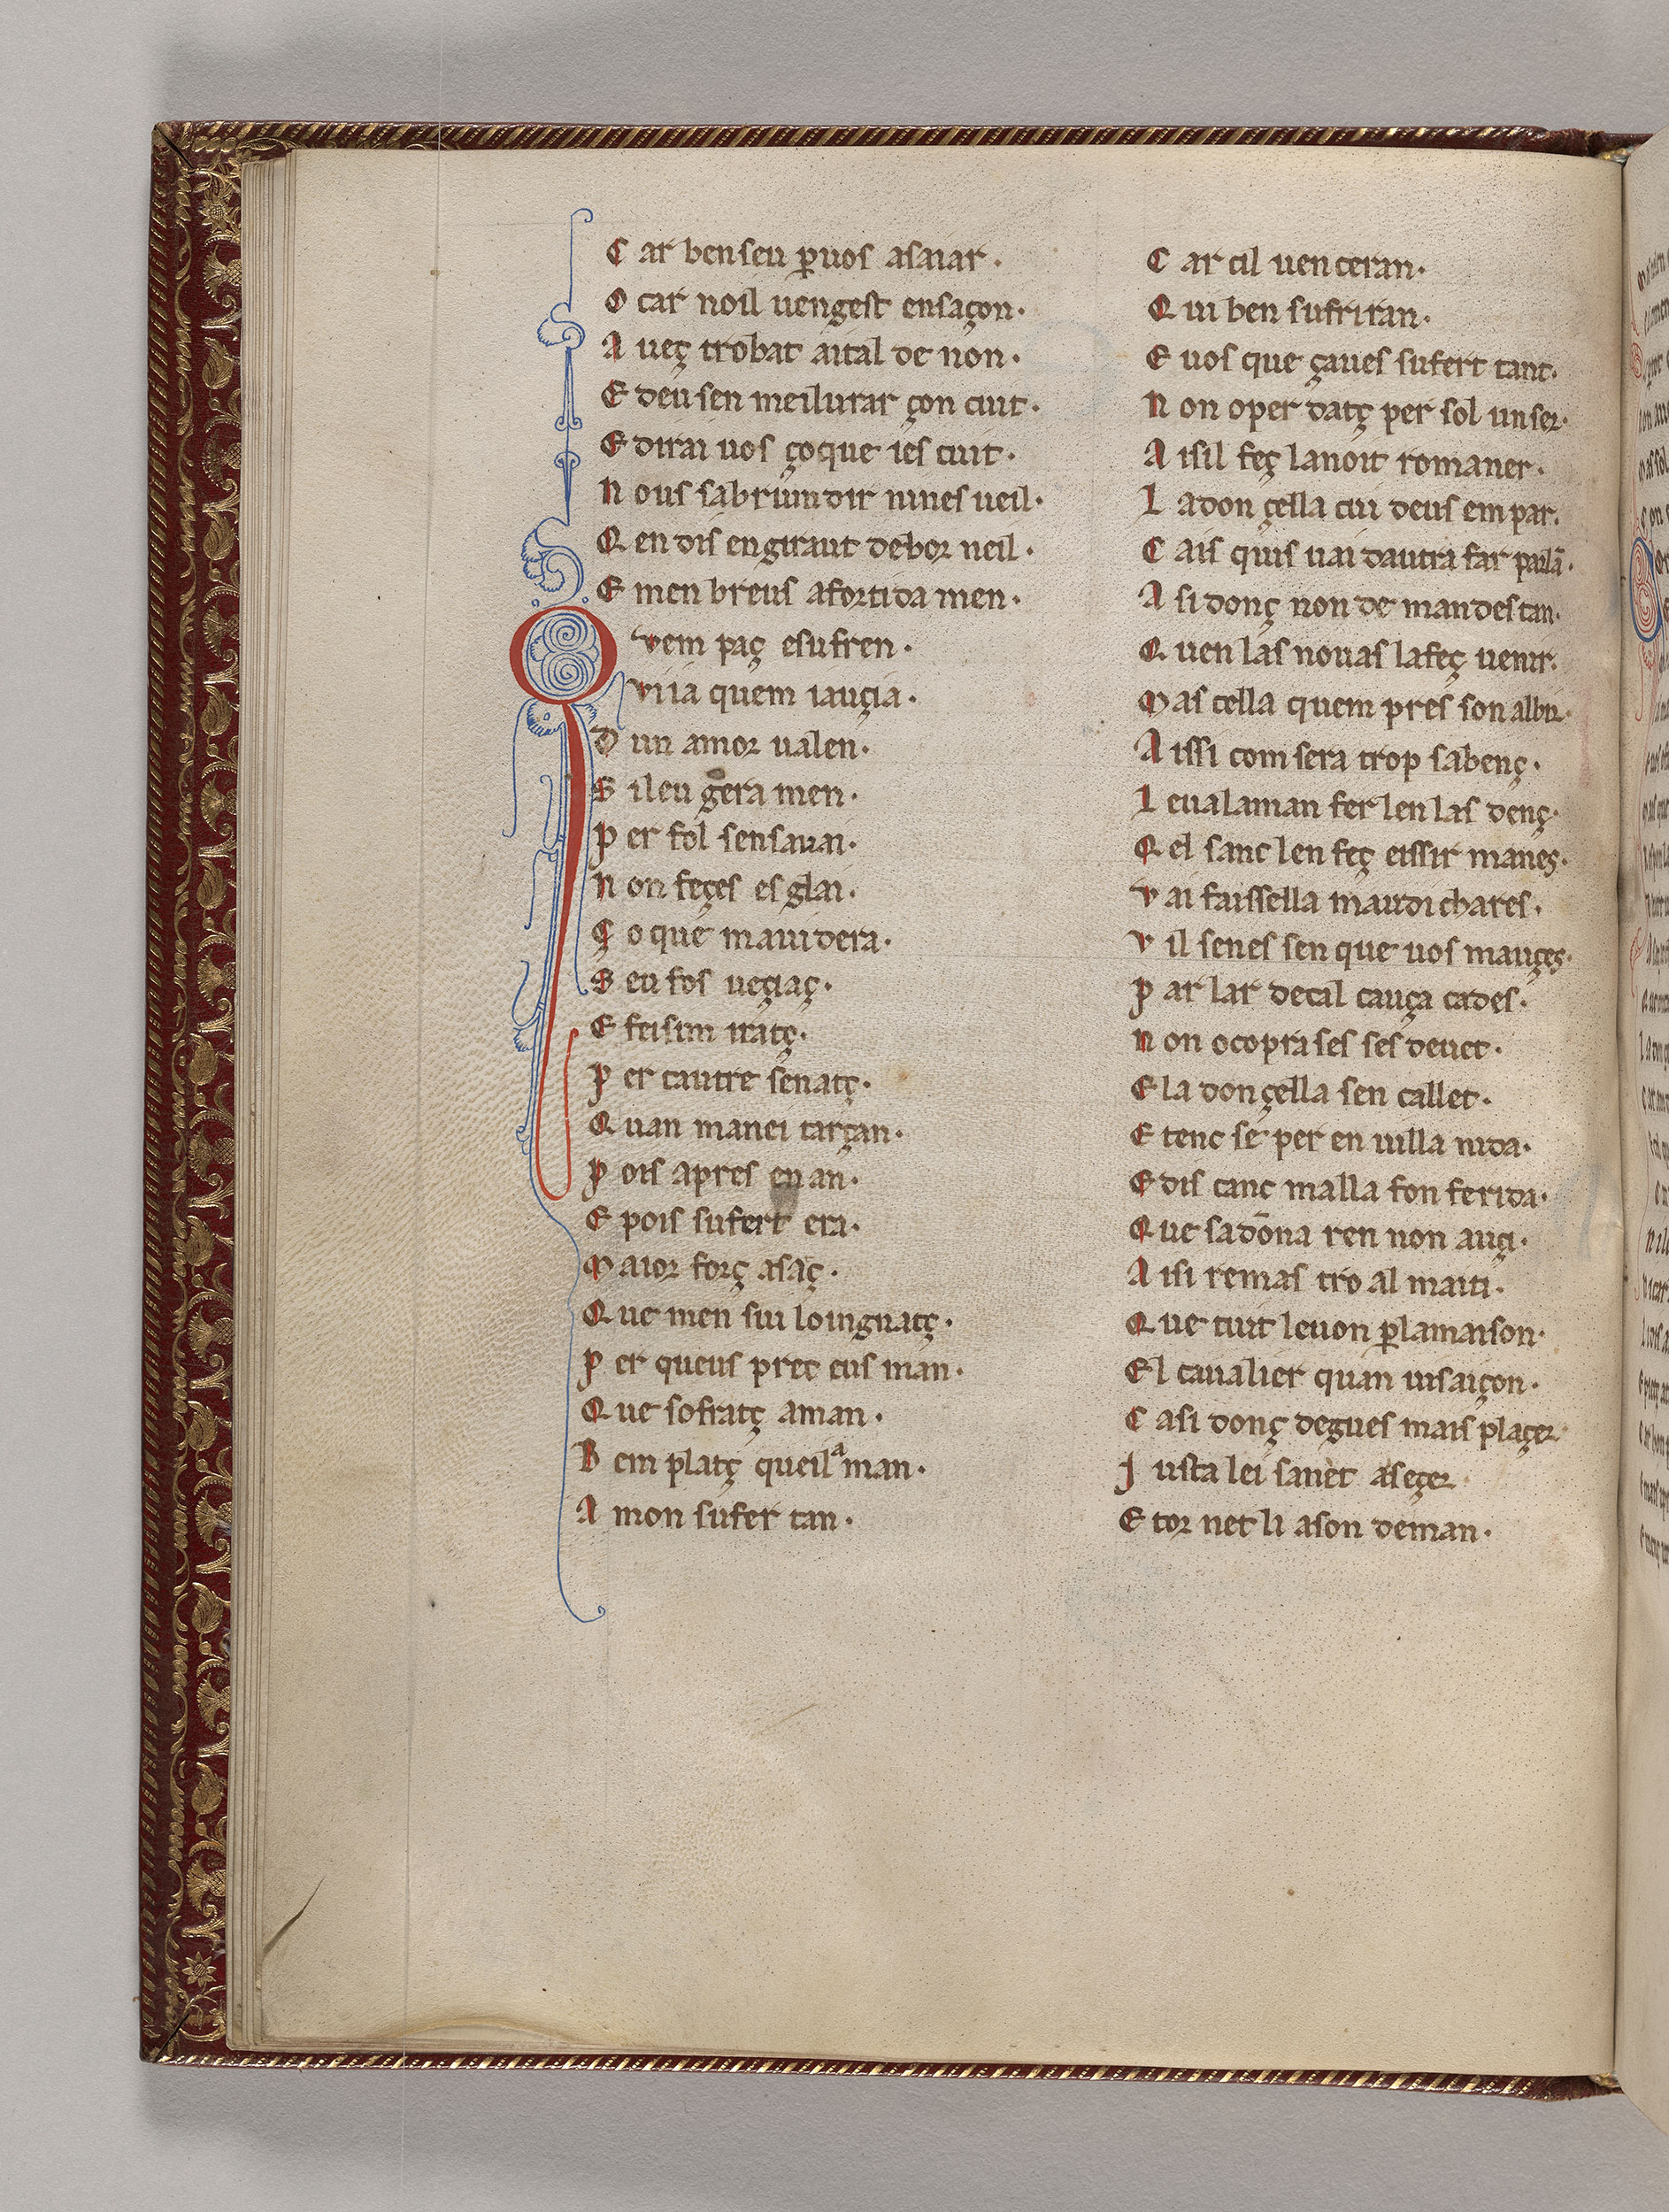 C ar ben seu ꝑuos asaiar ·
O car noil uengest ensaçon ·
A ueç trobat aital de non ·
E deu sen meilurar çon cuit ·
E dirai uos ço que ies cuit ·
N ous sabrium dir nines ueil ·
Q en dis en giraut de bor neil ·
E men breus afortida men ·
Q vem paç e sufren ·
vi ia quem iauçia ·
D un amor ualen ·
S ileu gera men ·
P er fol sen sauai ·
N on feçes es glai ·
Ç o que mauidera ·
S eu fos uegiaç ·
E feisim iratç ·
P er cautre senatç ·
Q uan manei tarçan ·
P ois apres en an ·
E pois sufert era ·
M aior forç asaç ·
Q ue men sui loingnatç ·
P er queus prec eus man ·
Q ue sofratç aman ·
B em platç queil a man ·
A mon sufer tan ·
C ar cil uen ceran ·
Q ui ben sufriran ·
E uos que çaues sufert tant ·
N on oper datç per sol un ser ·
A isil feç la noit romaner ·
L a don çella cui deus em par ·
C ais quis uai dautra far parlā ·
A si donç non de mandes tan ·
Q uen las nouas la feç uenir ·
M as cella quem pres son albir ·
A issi com sera trop sabenç ·
L eua la man fer len las denç ·
Q el sanc len feç eissir manes ·
V ai faissella maudi chares ·
V il senes sen que uos mauçes ·
P ar lar de cal cauça cades ·
N on o copra ses ses deuet ·
E la don çella sen callet ·
E tenc se per en uilla nida ·
E dis canc malla fon ferida ·
Q ue sa dōna ren non auçi ·
A isi remas tro al maiti ·
Q ue tuit leuon ꝑ la maison ·
E l caualier quan uisaiçon ·
C asi donç degues mais plaçer
J usta lei sanet aseçer
E tor net li ason deman ·